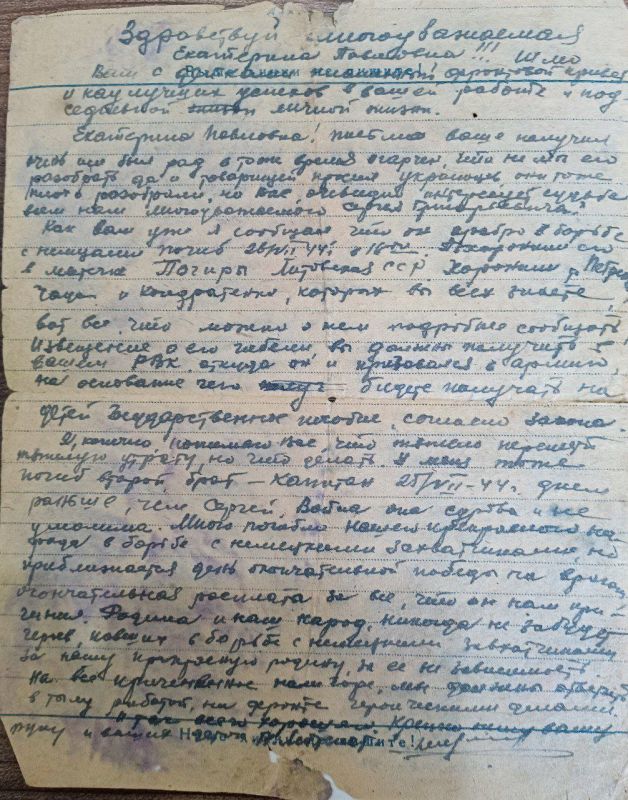 Здравствуй многоуважаемая
Екатерина Павловна!!! Шлю
Вам с фронтовой привет
и наилучших успехов в вашей работе и пов
седневной личной жизни.
Екатерина Павловна! письмо ваше получил
очень был рад в тоже время огорчен, что не мы его
разобрать да и товарищей просил украинцев они тоже
плохо разобрали, но вас очевидно интересует судьба
вам нам многоуважаемого Сергея Григорьевича?
Как вам уже я сообщал что он храбро в борьбе
с немцами погиб 26/VII 44г. в Похоронили его
в местечке Погиры Литовская ССР. Хоронили
и Кондратенко, которых вы всех знаете
вот все, что можно о нем подробнее сообщить
Извещение о его гибели вы должны получить в
вашем РВК откуда он и призывался в армию
на основание чего будете получать на
детей Государственное пособие, согласно закона.
Я, конечно понимаю Вас что тяжело пережить
тяжелую утрату, но что делать. У меня тоже
погиб второй брат – Капитан 25/VII-44г. днем
раньше, чем Сергей. Война она сурова и не
умолима. Много погибло нашего прекрасного на
рода в борьбе с немецкими захватчиками, но
приближается день окончательной победы над врагом
окончательная расплата за все, что он нам при-
чинил. Родина и наш народ, никогда не забудут
героев, павших в борьбе с немецкими захватчиками
за нашу прекрасную родину, за ее не зависимость.
На все причиненное нам горе, мы должны ответить
в тылу работой, на фронте героическими делами.
всего хорошего Крепко жму вашу
руку и ваших